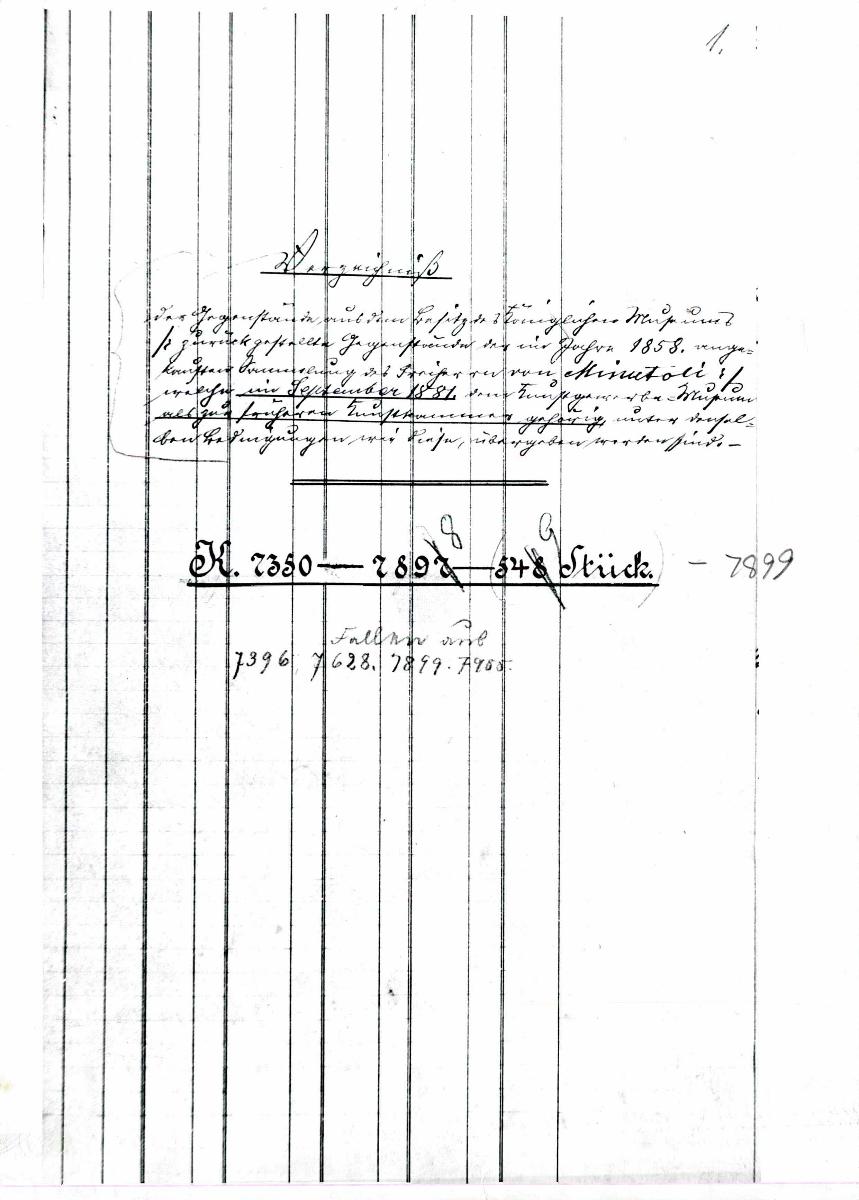 1.
Verzeichniß
der Gegenstände, aus dem Besitz des Königlichen Museums
/: zurückgestellte Gegenstände der im Jahre 1858. ange-
kauften Sammlung des Freiherrn von Minutoli :/
welche im September 1881. dem Kunstgewerbe-Museum
als zur früheren Kunstkammer gehörig, unter densel-
ben Bedingungen wie diese, übergeben worden sind. –
K. 7350 — 7897 8 — 548 9 Stück. – 7899
Fallen aus
7396, 7628. 7899. 7905.